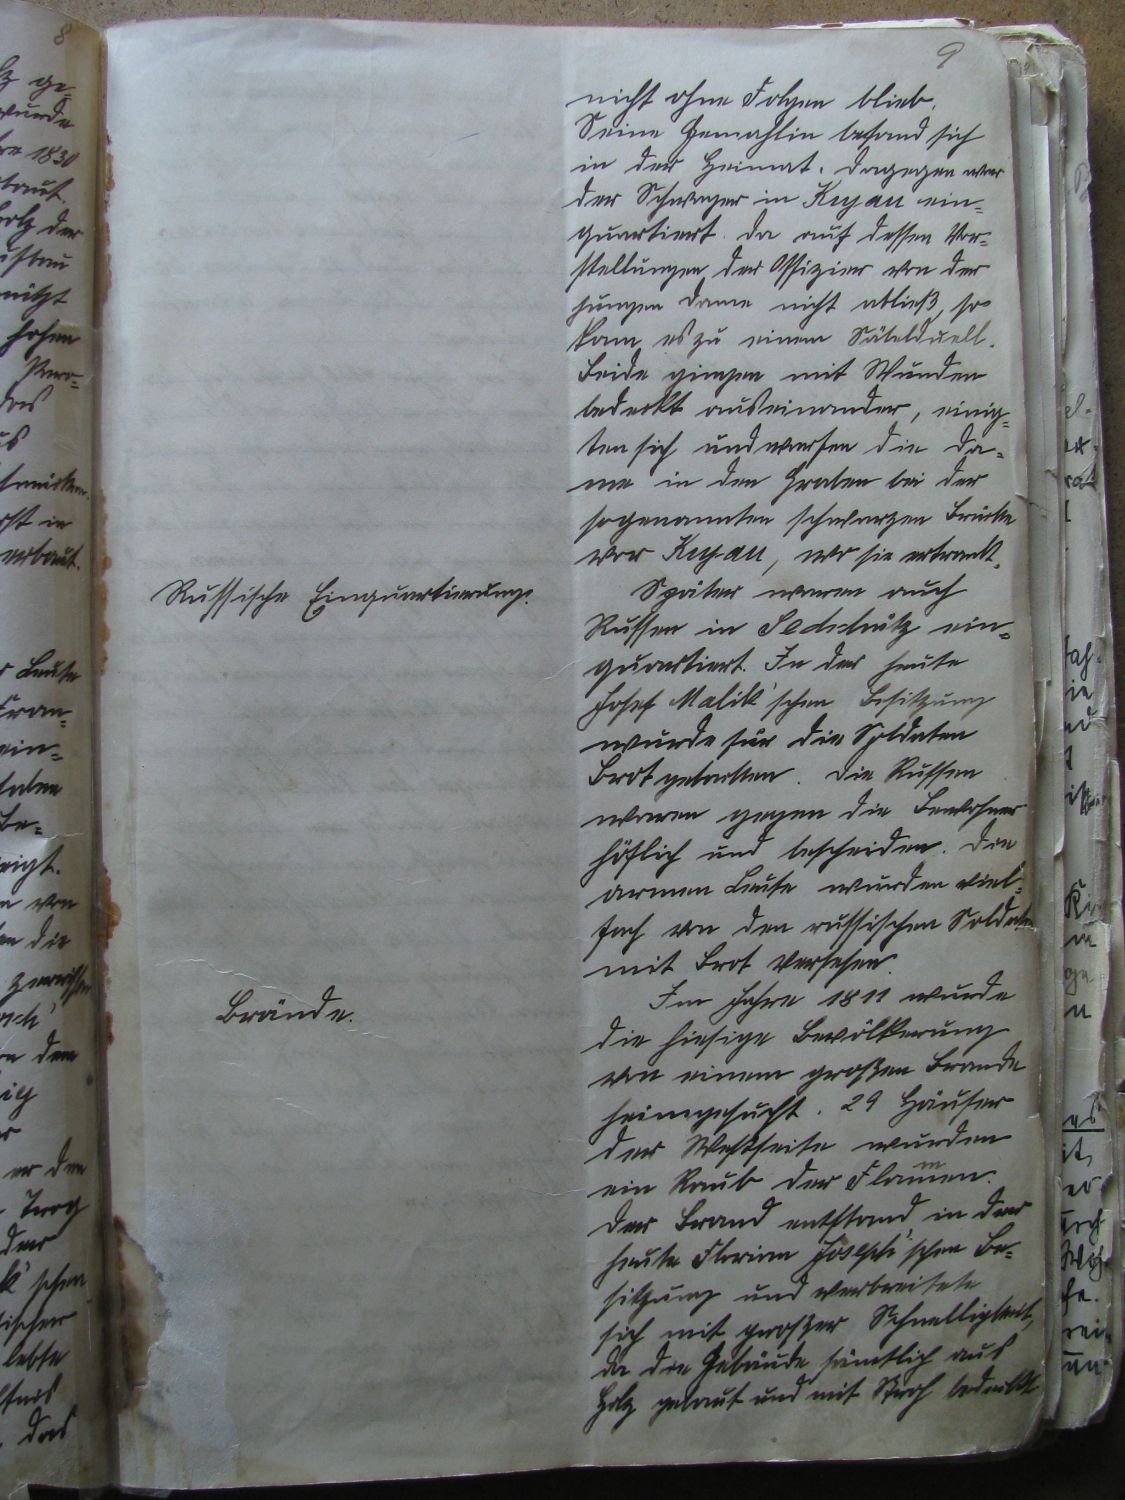 9
nicht ohne Folgen blieb.
Seine Gemahlin befand sich
in der Heimat. Dagegen war
der Schwager in Kujau ein=
quartiert. Da auf dessen Vor=
stellungen der Offizier von der
jungen Dame nicht abließ, so
kam es zu einem Säbelduell.
Beide gingen mit Wunden
bedeckt auseinander, einig=
ten sich und warfen die Da=
me in den Graben bei der
sogenannten schwarzen Brücke
vor Kujau, wo sie ertrank.
Russische Einquartierung.
Später waren auch
Russen in Sedschütz ein=
quartiert. In der heute
Josef Malik'schen Besitzung
wurde für die Soldaten
Brot gebacken. Die Russen
waren gegen die Bewohner
höflich und bescheiden. Die
armen Leute wurden viel=
fach von den russischen Soldaten
mit Brot versehen.
Brände.
Im Jahre 1811 wurde
die hiesige Bevölkerung
von einem großen Brande
heimgesucht. 29 Häuser
der Westseite wurden
ein Raub der Flammen.
Der Brand entstand in der
heute Florian Joseph'schen Be=
sitzung und verbreitete
sich mit großer Schnelligkeit,
da die Gebäude sämtlich aus
Holz gebaut und mit Stroh bedeckt
8
wurde
1830
erbaut.
Leute
von
die
dem
der
lebte
das